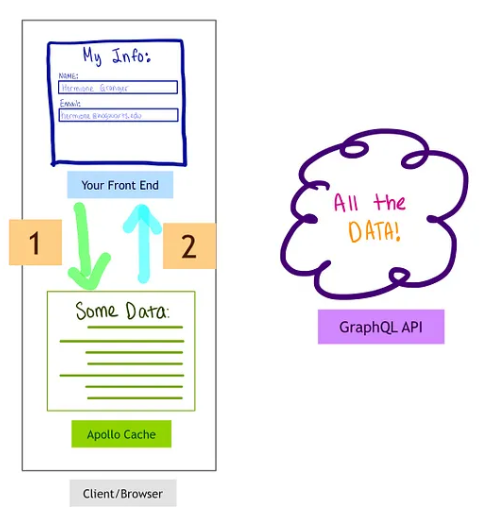 My Info:
Name:
Hermione Granger
Email:
Your Front End
1
2
Some Data:
Apollo Cache
Client/Browser
All the
DATA!
GraphQL API